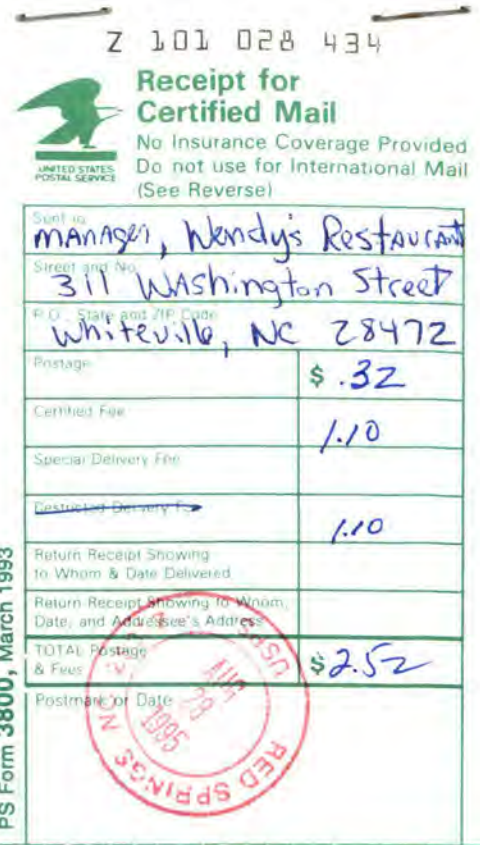 Z 101 028 434
Receipt for
Certified Mail
No Insurance Coverage Provided
UNITED STATES
POSTAL SERVICE
Do not use for International Mail
(See Reverse)
Sent to
MANAger, Wendy's RestAurANt
Street and No.
311 WAShington Street
P.O., State and ZIP Code
Whiteville, NC 28472
Postage
$ .32
Certified Fee
1.10
Special Delivery Fee
Restricted Delivery Fee
1.10
Return Receipt Showing
to Whom & Date Delivered
Return Receipt Showing to Whom,
Date, and Addressee's Address
TOTAL Postage
& Fees
$2.52
Postmark or Date
RED SPRINGS N.C.
USPS
AUG
28
1995
PS Form 3800, March 1993